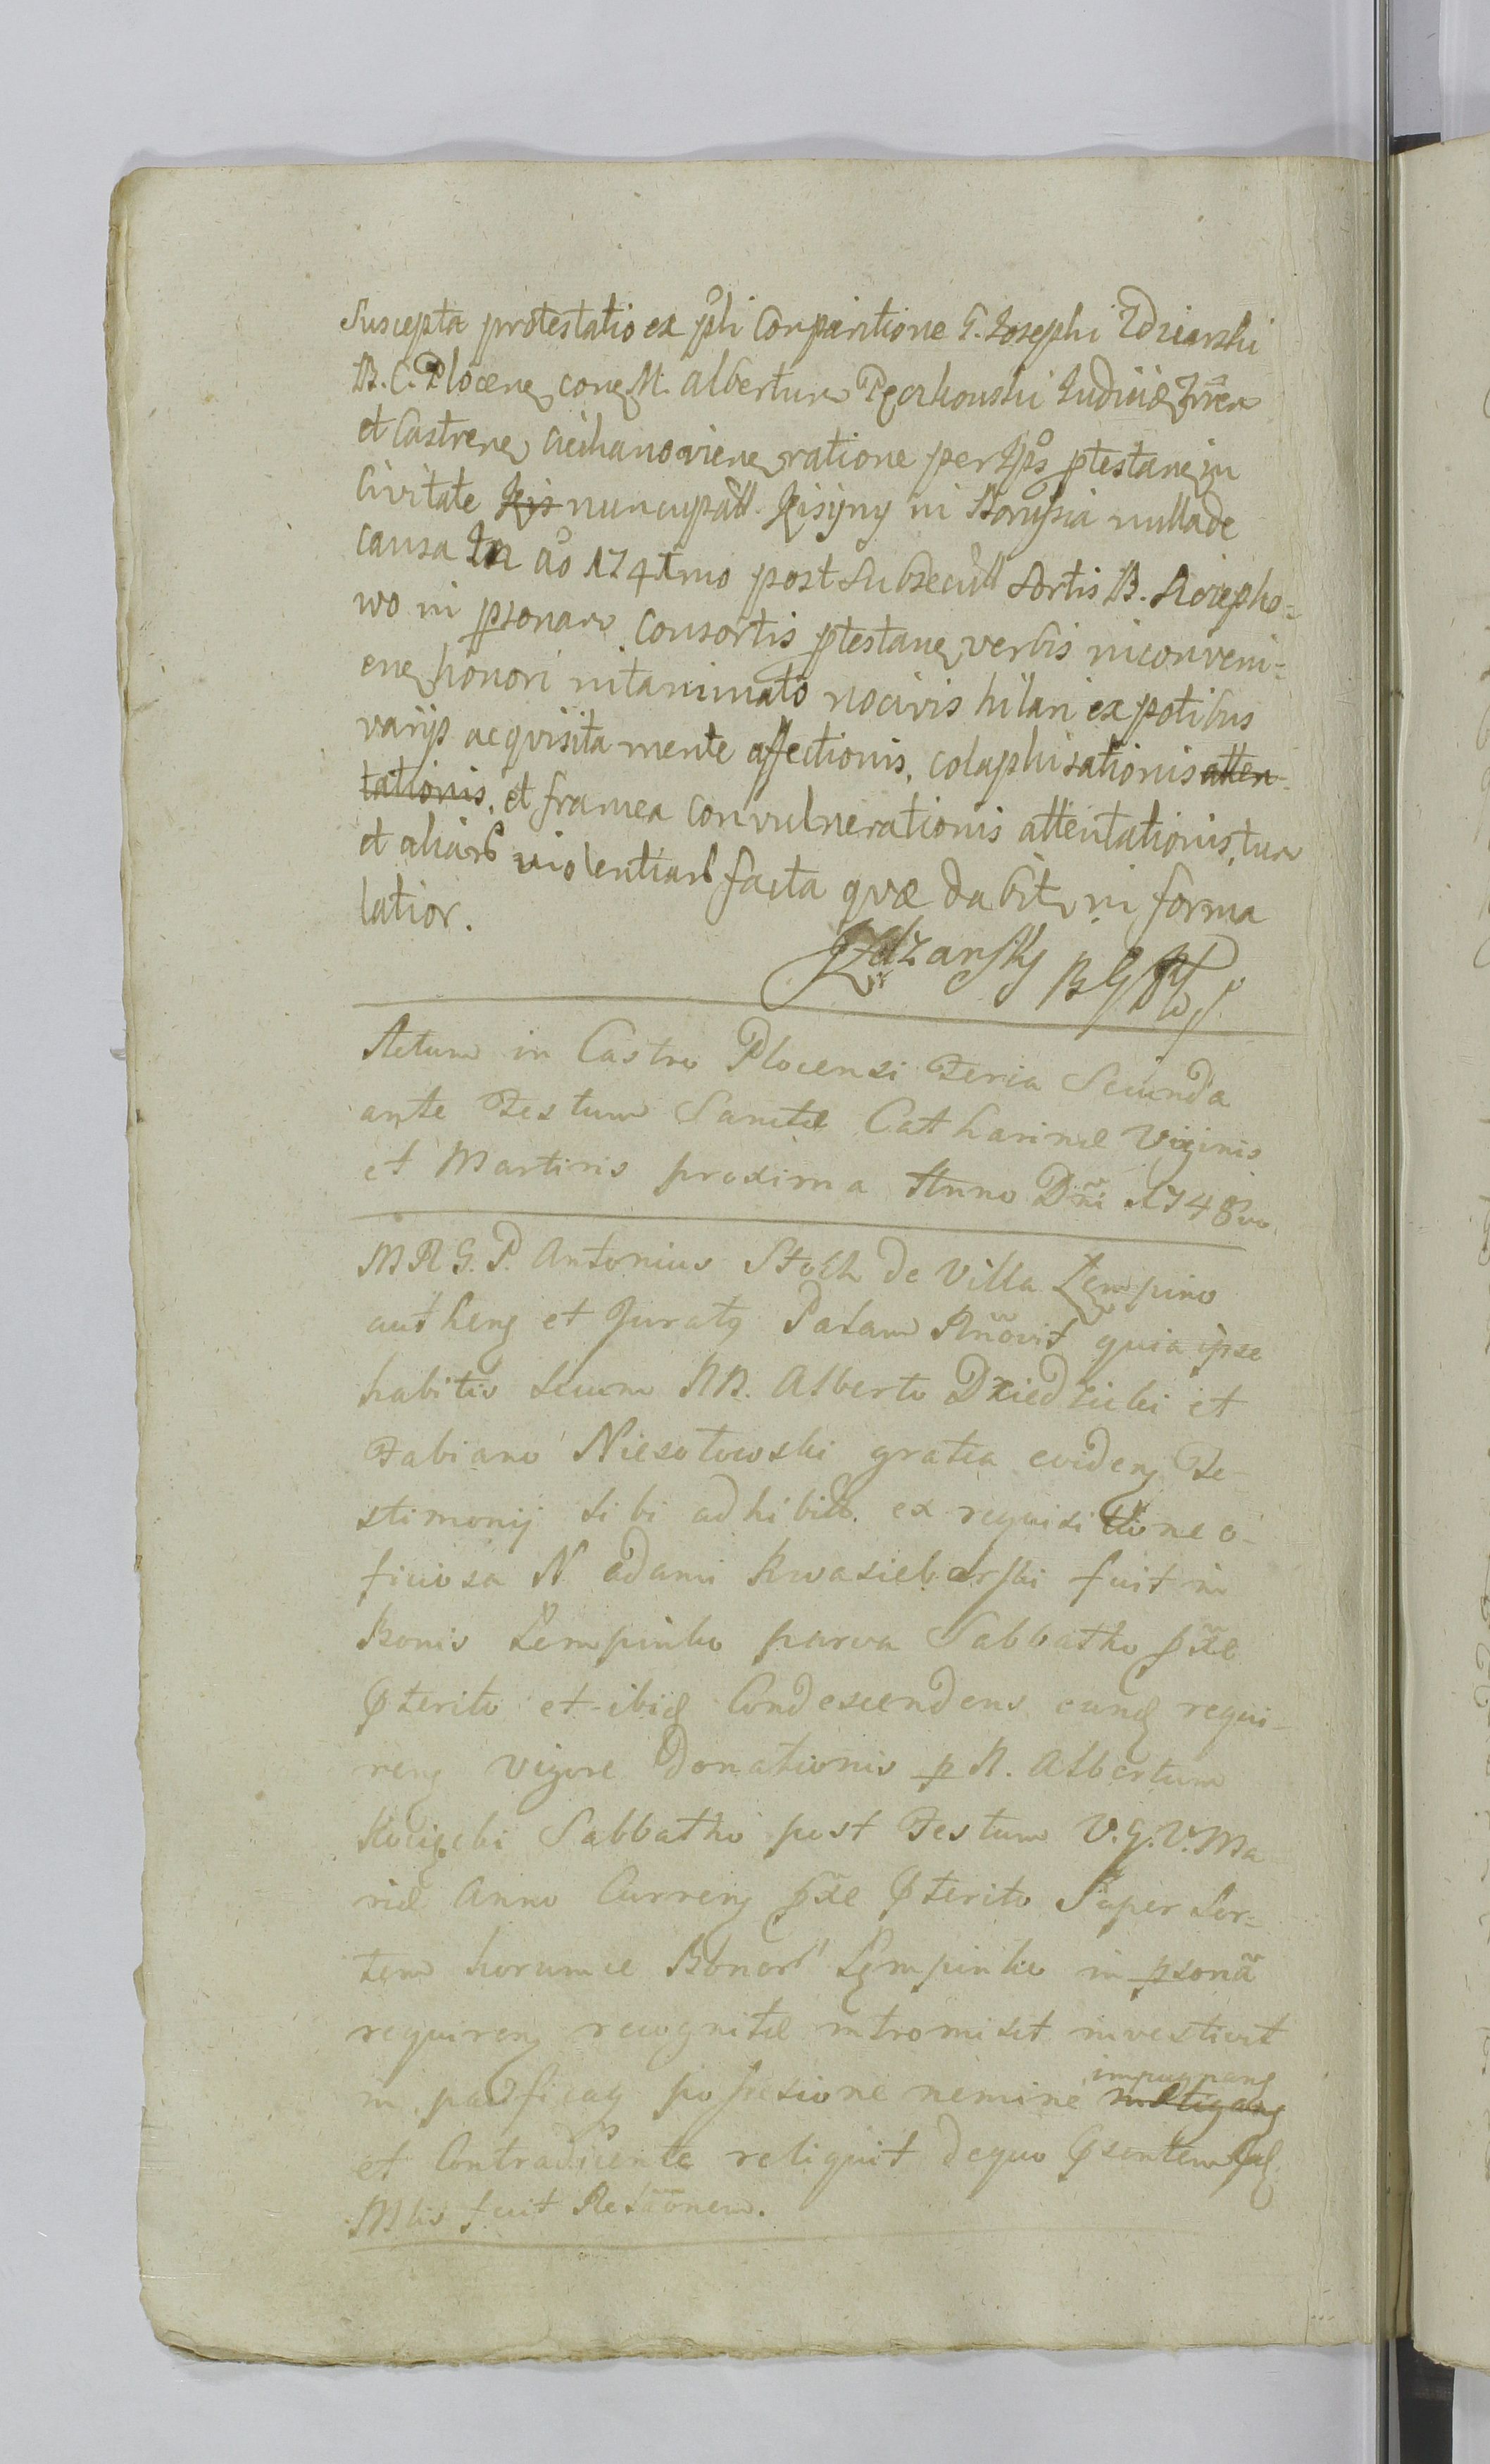 Suscepta protestatio ex pli Comparitione G. Josephi Zdziarski
B. C. Plocen conę M. albertum Pęczkowski Judicię Trren
et Castren Ciechanovien ratione per Ipos ptestanę in
Civitate Kis nuncupatt. Kisiyny in Borussia nullade
causa In ao 1741mo post Subsecutt Sortis B.
wo in psonam Consortis ptestanę verbis inconveni=
enę honori nitanimato nocivis hilari ex potibus
varijs acqvisita mente affectionis, colaphisationis atten=
tationis, et framea convulnerationis attentationis, tum
et aliarb violentiarb facta qvæ dabitr in forma
latior.
Actum in Castro Plocensi Feria Secunda
ante Festum Sanctæ Catharinæ Virginis
et Martiris proxima Anno Dñi 1748vo
MRG. P. Antonius Stoch de Villa Lęmpino
authenę et Juratę Palam Rñovit quia ipse
habitis secum NN. Alberto Dziedzicki et
Fabiano Niesołowski gratia evidenę Te-
stimonij sibi adhibitt. ex requisitione o-
ficiosa N adami Kwasieborski fuit in
Bonis Lempinko parva Sabbatho pxe
pterito et ibid Condescendens eund requi-
renę vigore Donationis p N. Albertum
Kocięcki Sabbatho post Festum V. G. V. Ma
riæ Anno Currenę pxe pterito Super Sor=
tem horumce Bonorb Lęmpinko in psona
requirenę recognitæ intromisit investivit
in pacificaq possesione nemine impugnanę instiganę
et Contradicente reliquit dequo psentem
fuit Relãõnem.